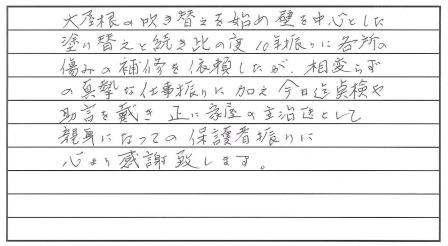 大屋根の吹き替えを始め壁を中心とした
塗り替えと続き此の度10年振りに各所の
傷みの補修を依頼したが、相変らず
の真摯な仕事振りに加え今日迄点検や
助言を戴き正に家屋の主治医として
親身になっての保護者振りに
心より感謝致します。